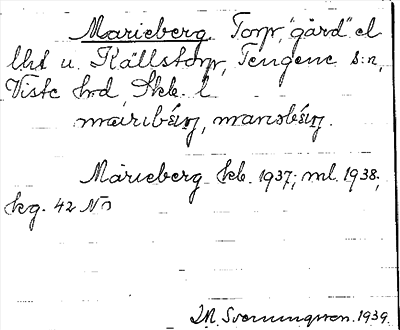 Marieberg. Torp, "gård" el
lht u. Källstorp, Tengene s:n,
Viste hrd, Skb. l.
Marieberg. skb. 1937; ml. 1938;
kg. 42 NO
M. Svenningsson. 1939.